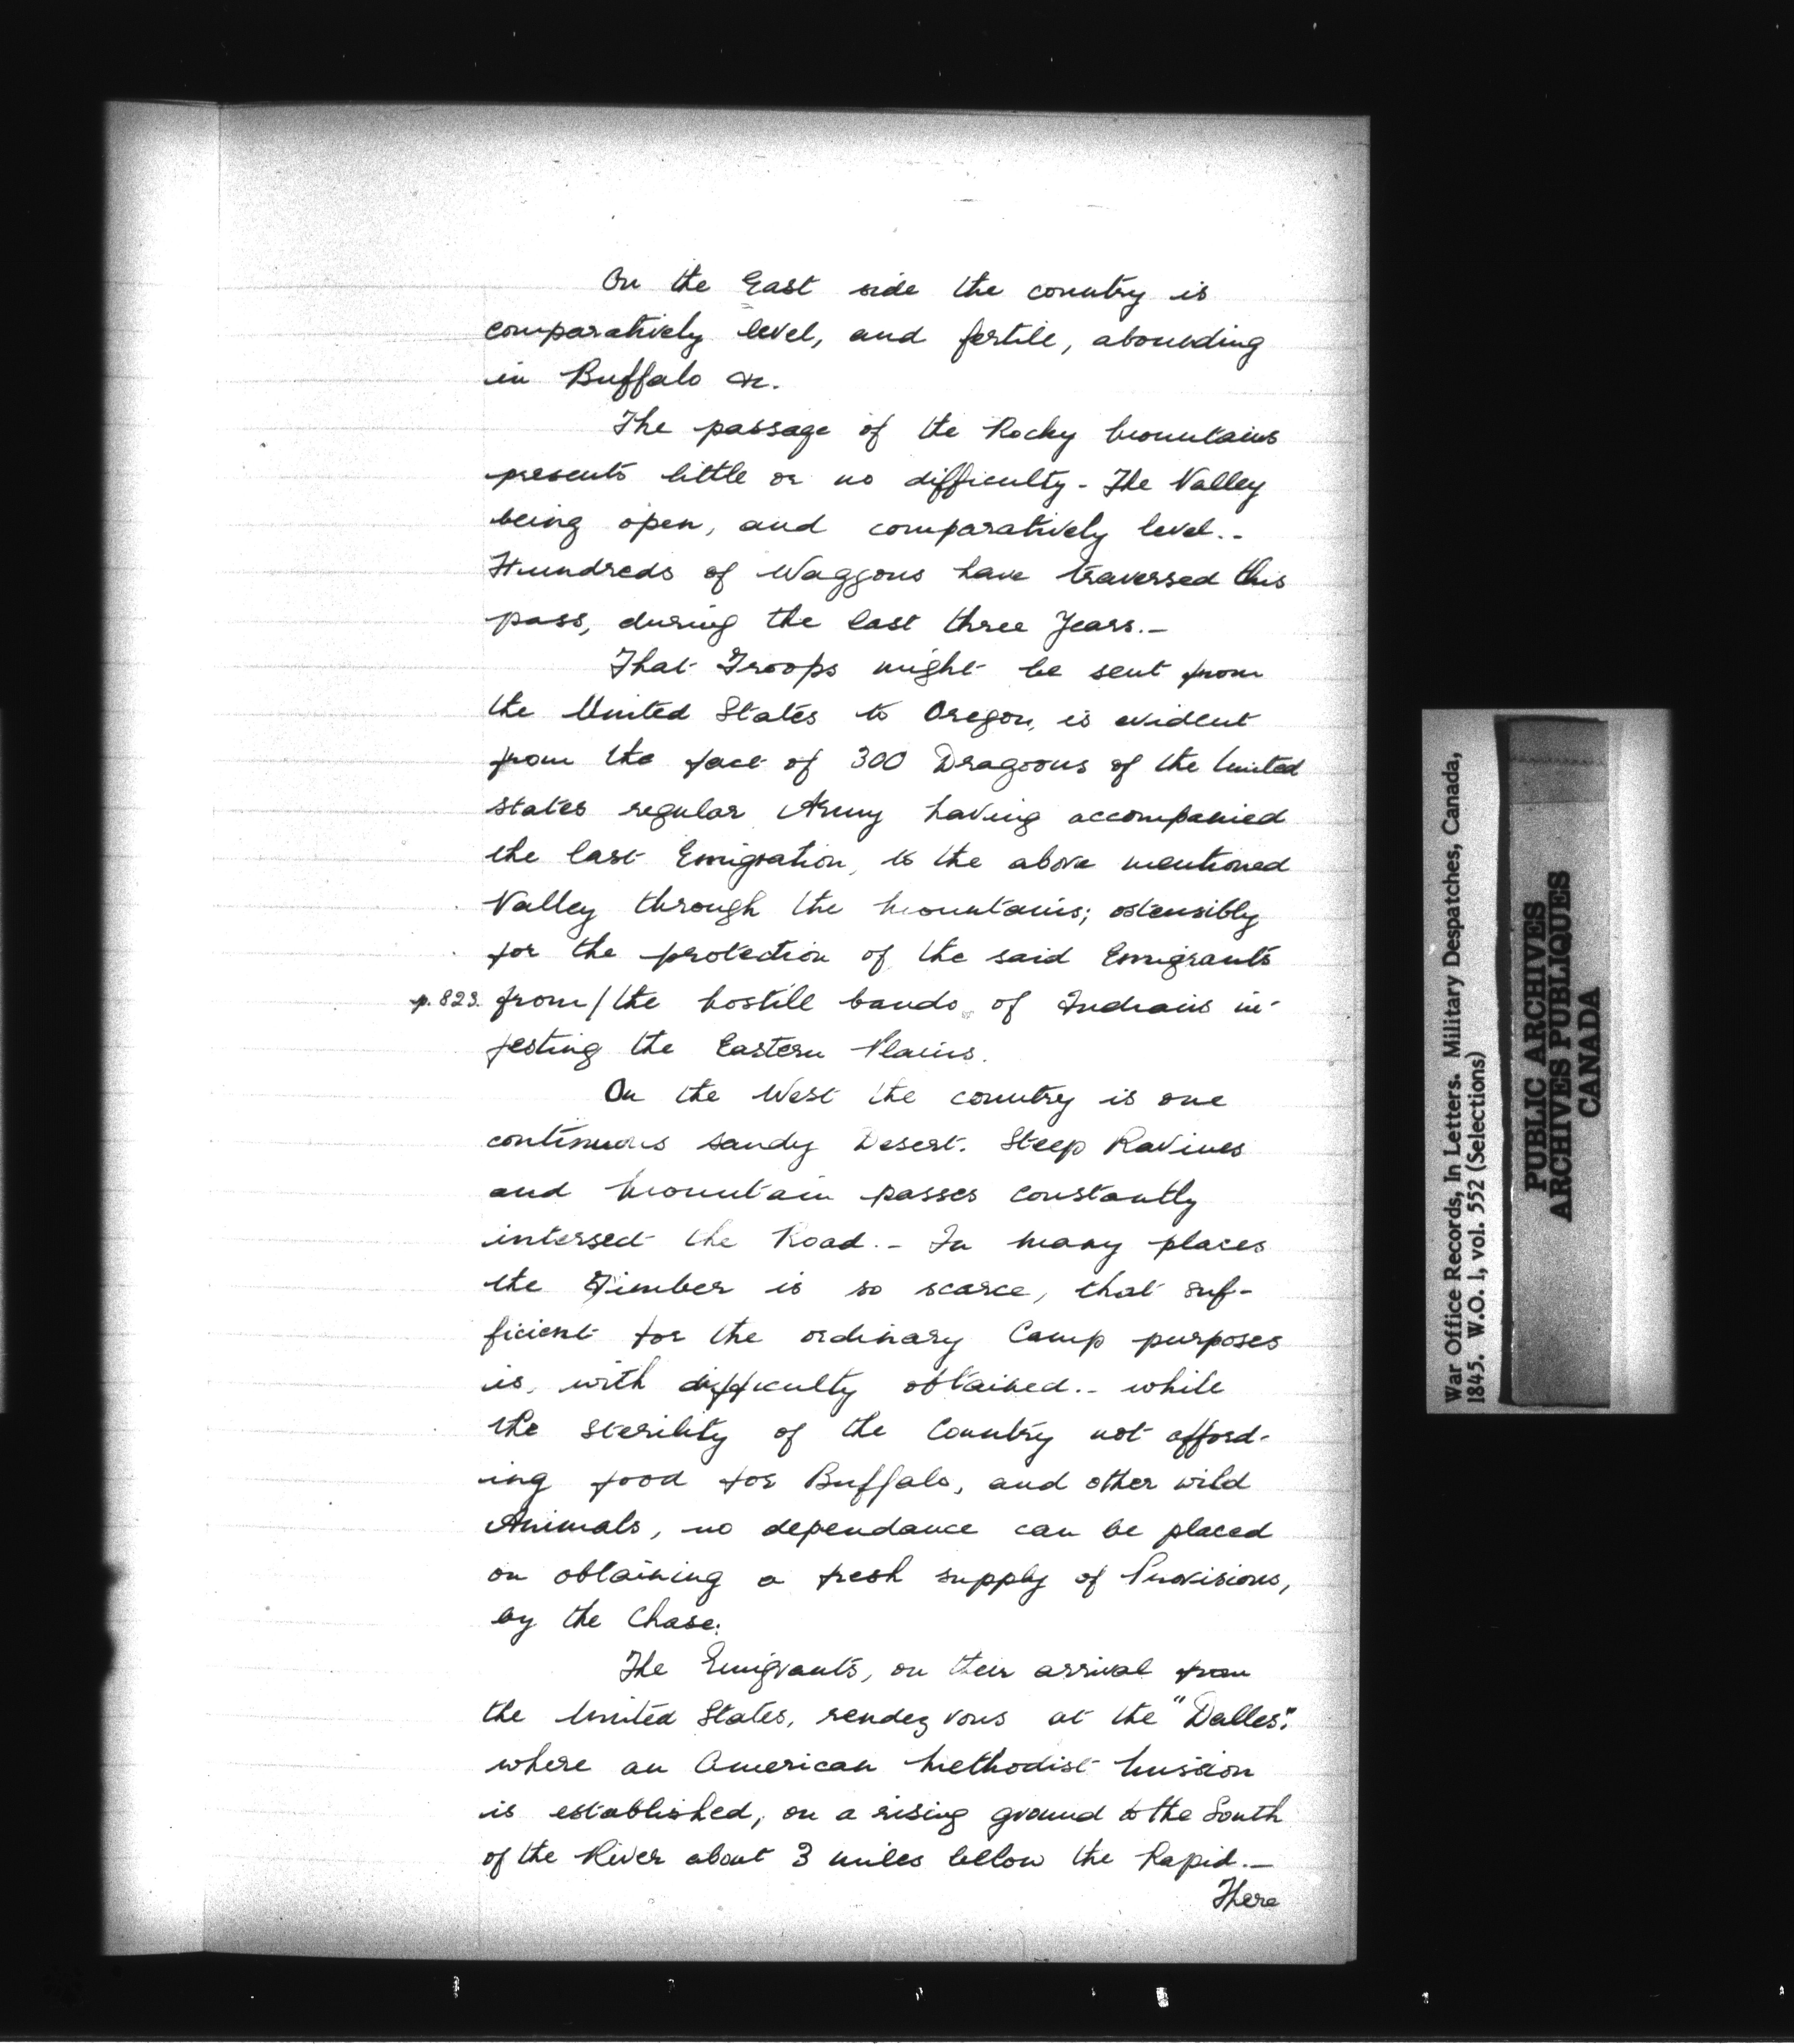 On the East side the country is
comparatively level, and fertile, abounding
in Buffalo &c.
The passage of the Rocky Mountains
presents little or no difficulty - The Valley
being open, and comparatively level..
Hundreds of Waggons have traversed this
pass, during the last three Years.-
That Troops might be sent from
the United States to Oregon, is evident
from the fact of 300 Dragoons of the United
States regular Army having accompanied
the last Emigration, to the above mentioned
Valley through the Mountains; ostensibly
for the protection of the said Emigrants
p. 823. from / the hostile bands of Indians in-
festing the Eastern Plains.
On the West the country is one
continuous sandy Desert. Steep Ravines
and Mountain passes constantly
intersect the Road.- In many places
the Timber is so scarce, that suf-
ficient for the ordinary Camp purposes
is, with difficulty obtained.- while
the sterility of the Country not afford-
ing food for Buffalo, and other wild
Animals, no dependance can be placed
on obtaining a fresh supply of Provisions,
by the Chase.
The Emigrants, on their arrival from
the United States, rendezvous at the "Dalles".
where an American Methodist Mission
is established, on a rising ground to the South
of the River about 3 miles below the Rapid.-
There
War Office Records, In Letters. Military Despatches, Canada,
1845. W.O. 1, vol. 552 (Selections)
PUBLIC ARCHIVES
ARCHIVES PUBLIQUES
CANADA